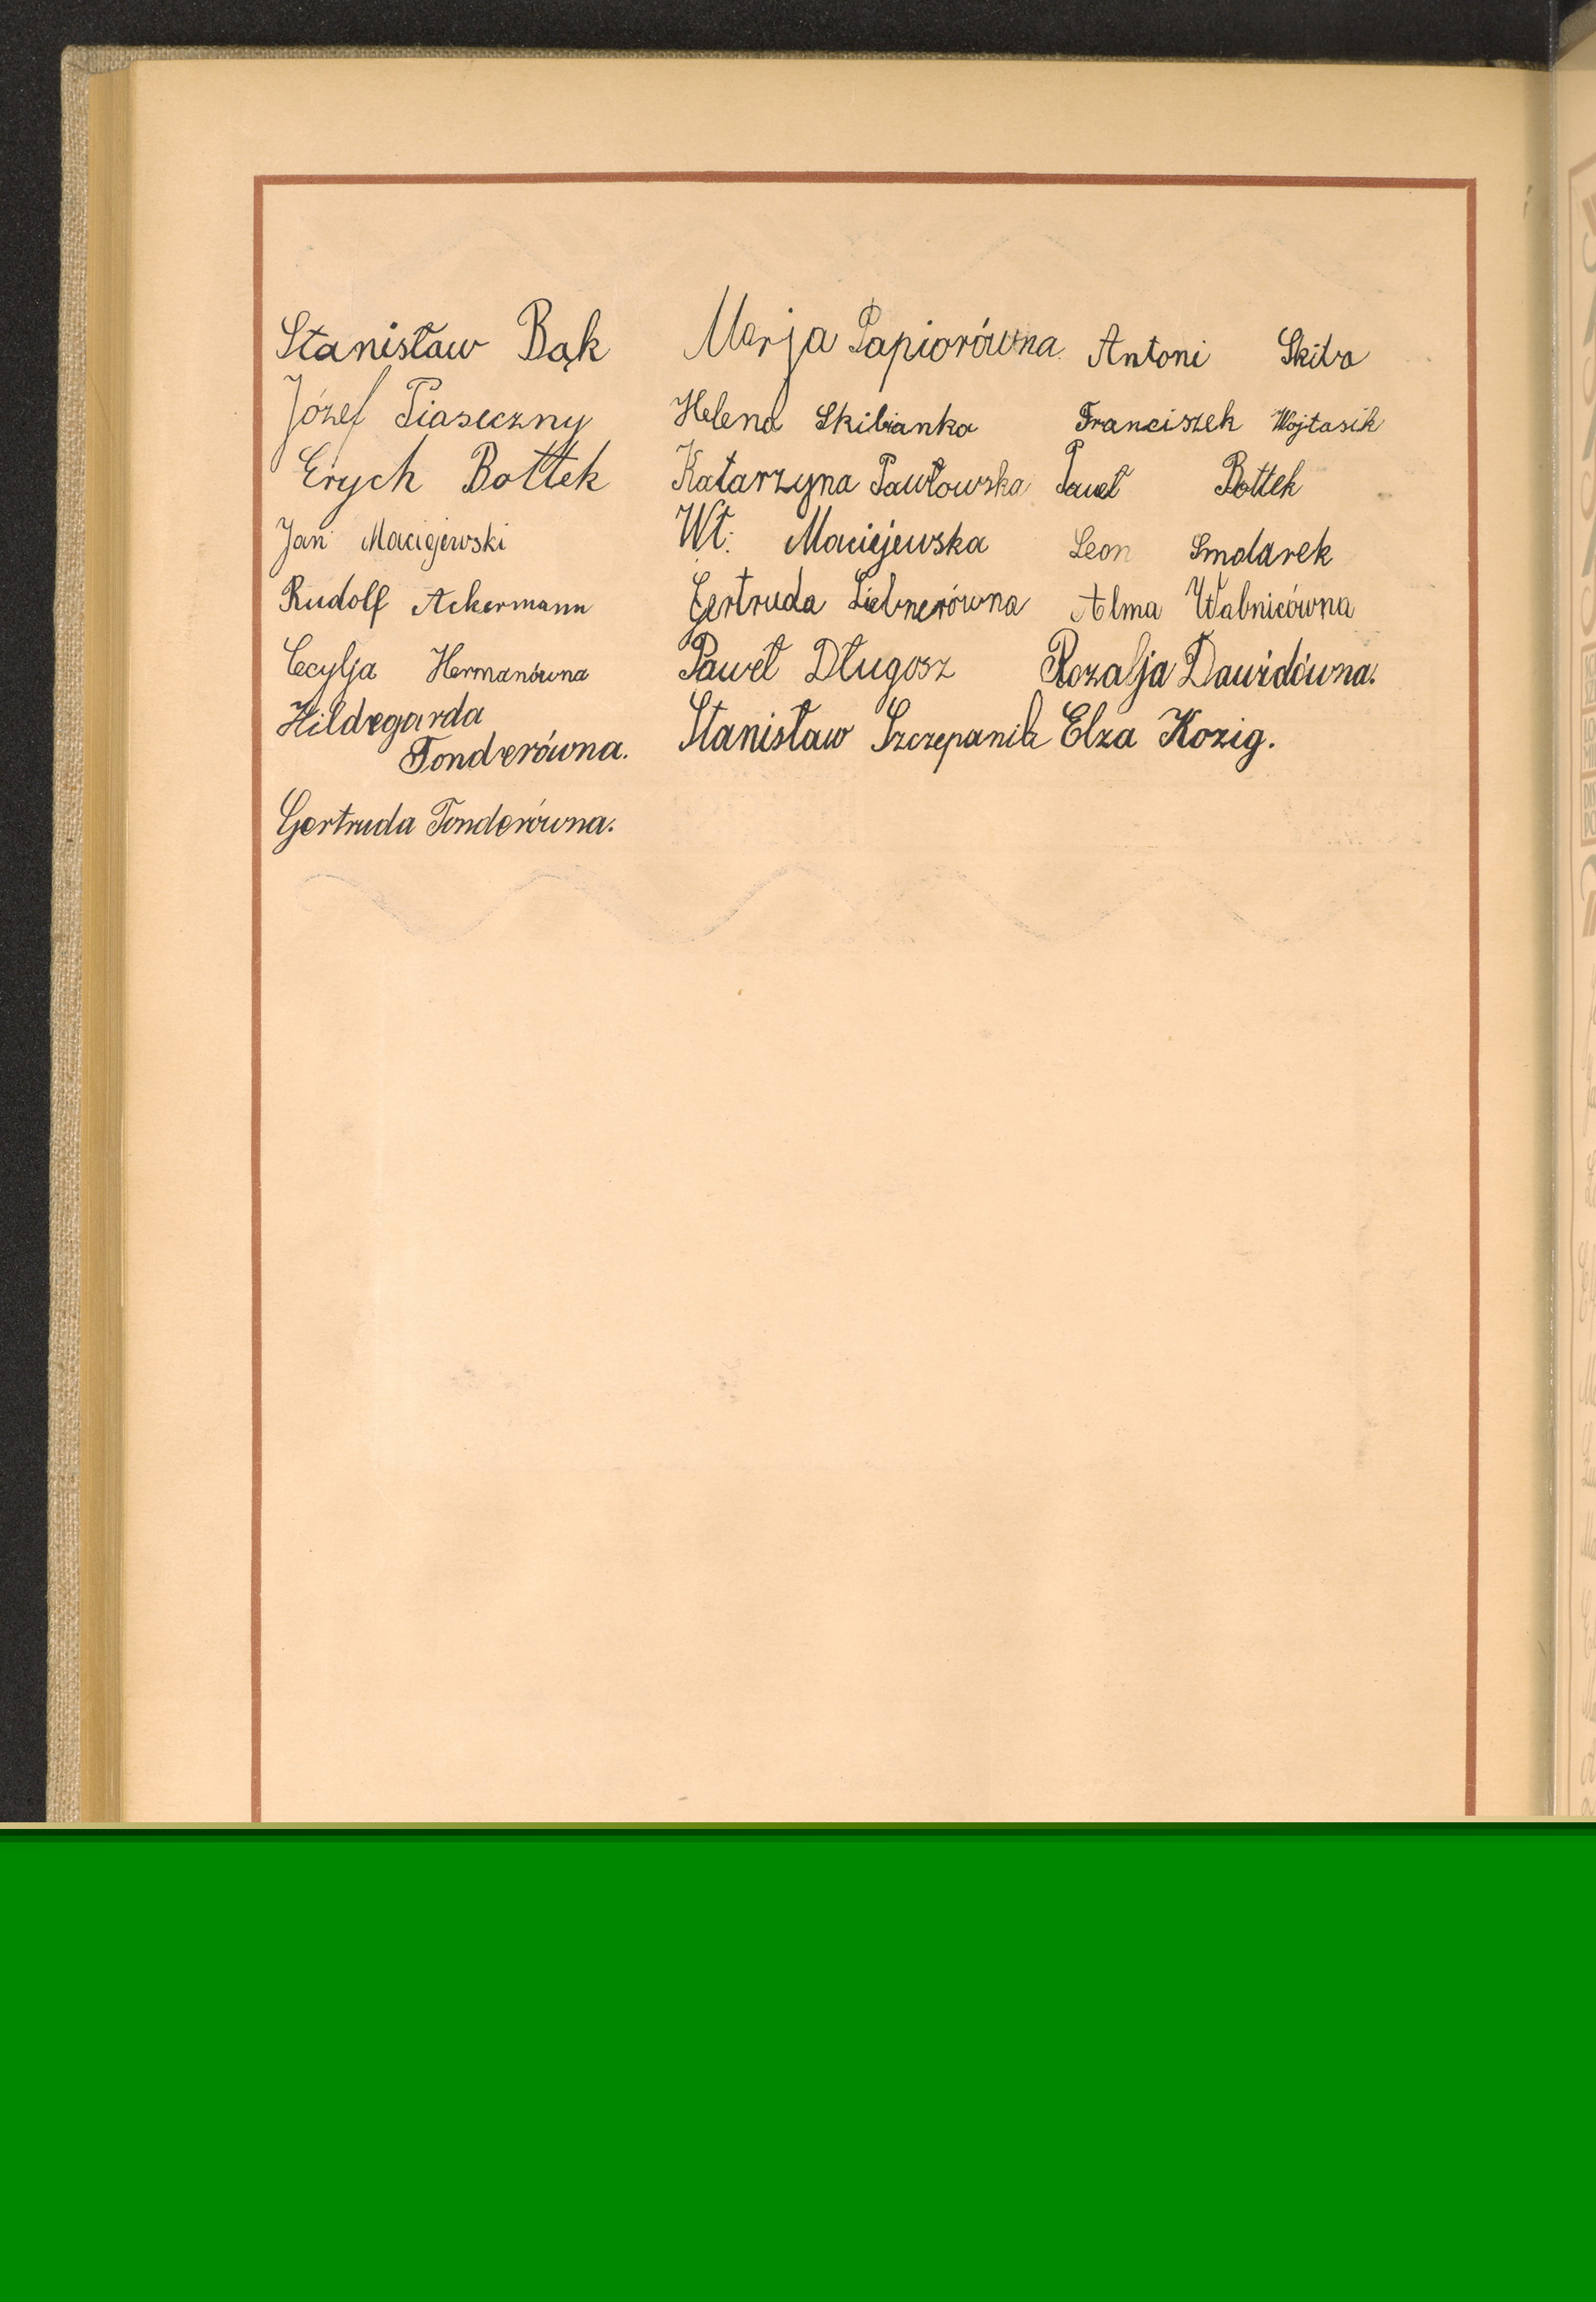 Stanisław Bąk Marja Papiorówna Antoni Skiba
Józef Piaseczny Helena Skibianka Franciszek Wojtasik
Erych Bottek Katarzyna Pawłowska Paweł Bottek
Jan Maciejewski Wł. Maciejewska Leon Smolarek
Rudolf Ackermann Gertruda Liebnerówna Alma Wabnicówna
Cecylja Hermanówna Paweł Długosz Rozalja Dawidówna.
Hildegarda Stanisław Szczepanik Elza Kozig.
Tonderówna.
Gertruda Tonderówna.